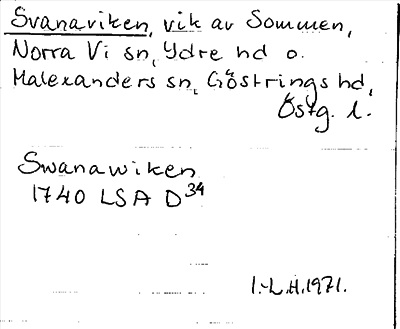 Svanaviken, vik av Sommen,
Norra Vi sn, Ydre hd o.
Malexanders sn, Göstrings hd,
Östg. l.
Swanawiken
1740 LSA D³⁴
I.-L.H. 1971.